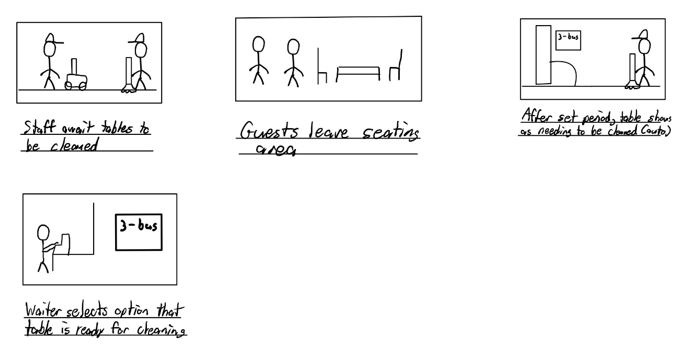 Staff await tables to
be cleaned
Guests leave seating
area
3-bus
After set period, table shows
as needing to be cleaned (auto)
3-bus
Waiter selects option that
table is ready for cleaning